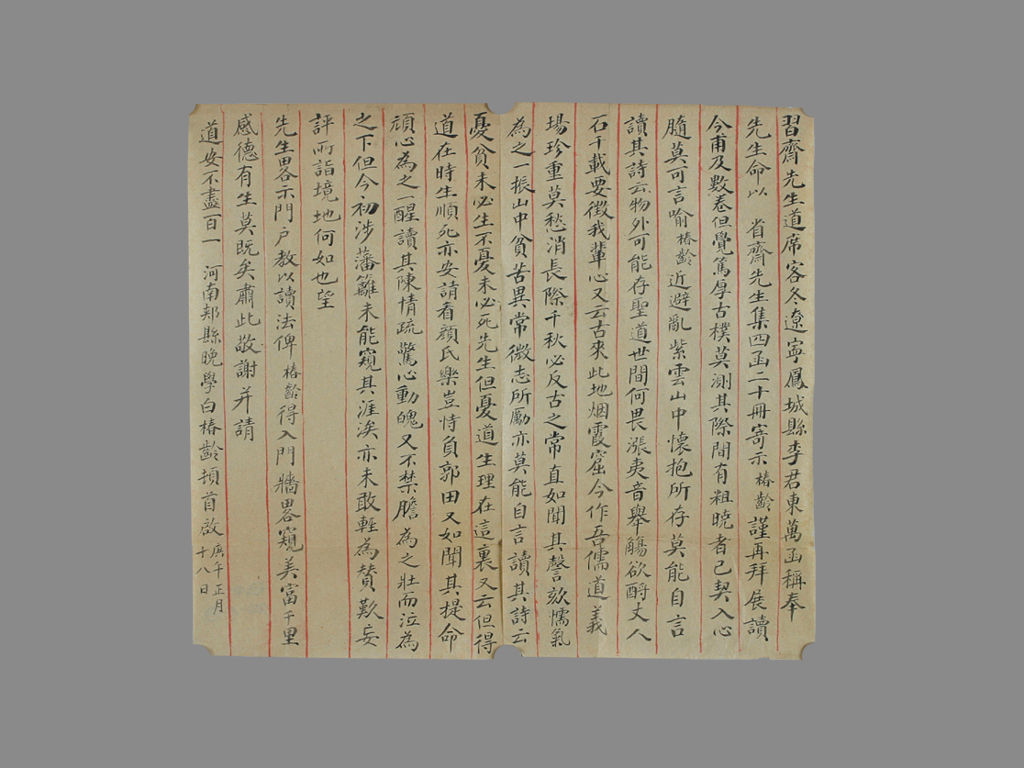 習齋先生道席客冬遼寧鳳城縣李君東萬函稱奉
先生命以 省齋先生集四函二十冊寄示椿齡謹再拜展讀
今甫及數卷但覺篤厚古樸莫測其際間有粗曉者已契入心
髓莫可言喻椿齡近避亂紫雲山中懷抱所存莫能自言
讀其詩云物外可能存聖道世間何畏漲夷音舉觴欲酹丈人
石千載要徵我輩心又云古來此地烟霞窟今作吾儒道義
場珍重莫愁消長際千秋必反古之常直如聞其謦欬懦氣
為之一振山中貧苦異常微志所勵亦莫能自言讀其詩云
憂貧未必生不憂未必死先生但憂道生理在這裏又云但得
道在時生順死亦安請看顏氏樂豈恃負郭田又如聞其提命
頑心為之一醒讀其陳情疏驚心動魄又不禁膽為之壯而泣為
之下但今初涉藩籬未能窺其涯涘亦未敢輕為贊歎妄
評所詣境地何如也望
先生畧示門戶教以讀法俾椿齡得入門牆畧窺美富千里
感德有生莫既矣肅此敬謝并請
道安不盡百一 河南郟縣晚學白椿齡頓首啟 庚午正月
十八日